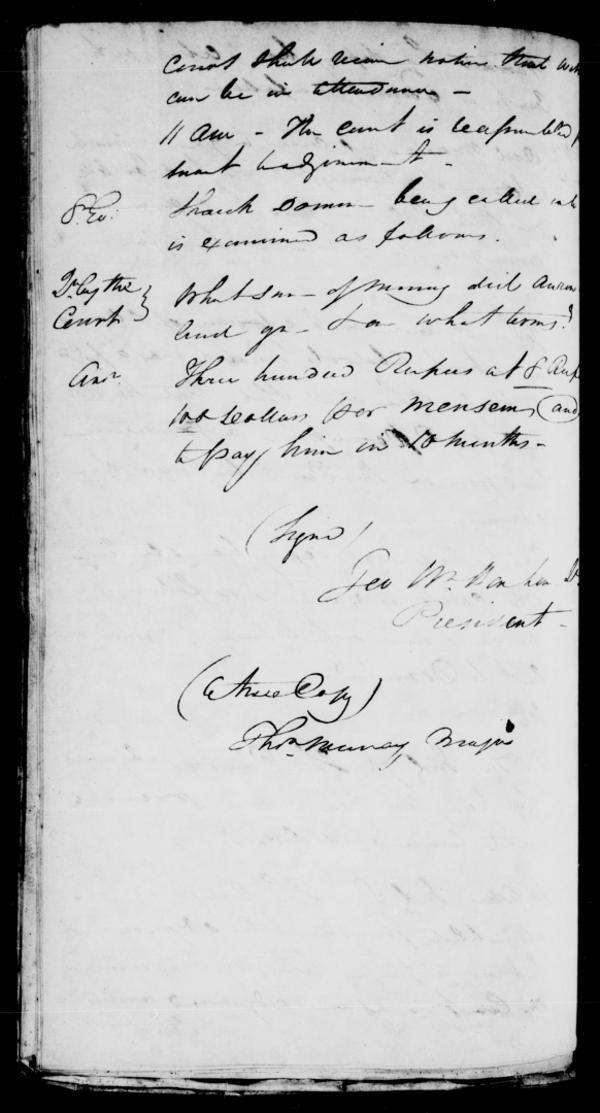 Court shall receive notice that
can be in attendance -
11 AM - The court is reassembled
suant to adjournment -
being called
is examined as follows.
Qn by the
Court
What sum of money did
lend you & on what terms?
Ansr. Three hundred Rupees at 8
per mensem and
to pay him in 10 months -
(Signed)
Geo Wm
President -
(A true Copy)
Thos. Murray Major